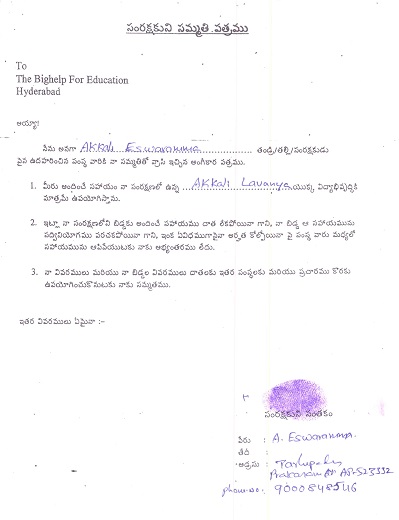 సంరక్షకుని సమ్మతి పత్రము
To
The Bighelp For Education
Hyderabad
అయ్యా!
నేను అనగా Akkali Eswaramma తండ్రి/తల్లి/సంరక్షకుడు
పైన ఉదహరించిన సంస్థ వారికి నా సమ్మతితో వ్రాసి ఇచ్చిన అంగీకార పత్రము.
1. మీరు అందించే సహాయం నా సంరక్షణలో ఉన్న Akkali Lavanya యొక్క విద్యాభివృద్ధికి
మాత్రమే ఉపయోగిస్తాము.
2. ఇట్లా నా సంరక్షణలోని బిడ్డకు అందించే సహాయము దాత లేకపోయినా గాని, నా బిడ్డ ఆ సహాయమును
సద్వినియోగము పరచకపోయినా గాని, ఇంక ఏవిధముగానైనా అర్హత కోల్పోయినా పై సంస్థ వారు మధ్యలో
సహాయమును ఆపివేయుటకు నాకు అభ్యంతరము లేదు.
3. నా వివరములు మరియు నా బిడ్డల వివరములు దాతలకు ఇతర సంస్థలకు మరియు ప్రచారము కొరకు
ఉపయోగించుకొనుటకు నాకు సమ్మతము.
ఇతర వివరములు ఏమైనా :-
సంరక్షకుని సంతకం
పేరు : A. Eswaramma
తేది :
అడ్రసు :
Prakasam Dt AP-523332
phone no: 9000848546